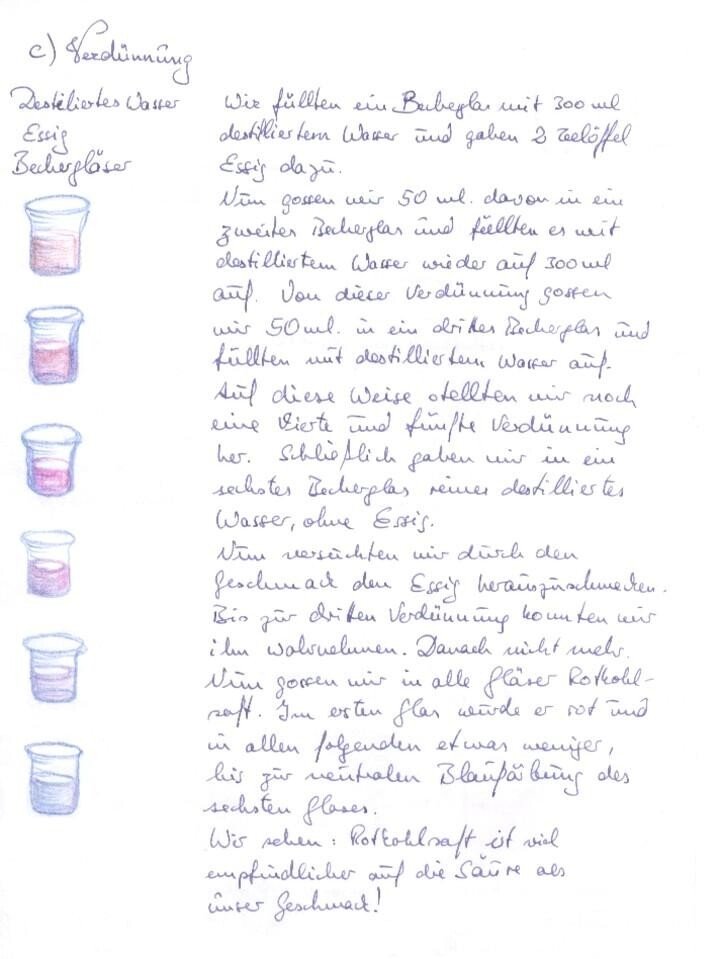 c) Verdünnung
Destilliertes Wasser
Essig
Bechergläser
Wir füllten ein Becherglas mit 300 ml
destilliertem Wasser und gaben 2 Teelöffel
Essig dazu.
Nun gossen wir 50 ml. davon in ein
zweites Becherglas und füllten es mit
destilliertem Wasser wieder auf 300 ml
auf. Von dieser Verdünnung gossen
wir 50 ml. in ein drittes Becherglas und
füllten mit destilliertem Wasser auf.
Auf diese Weise stellten wir noch
eine vierte und fünfte Verdünnung
her. Schließlich gaben wir in ein
sechstes Becherglas reines destilliertes
Wasser, ohne Essig.
Nun versuchten wir durch den
Geschmack den Essig herauszuschmecken.
Bis zur dritten Verdünnung konnten wir
ihn wahrnehmen. Danach nicht mehr.
Nun gossen wir in alle Gläser Rotkohl-
saft. Im ersten Glas wurde er rot und
in allen folgenden etwas weniger,
bis zur neutralen Blaufärbung des
sechsten Glases.
Wir sehen: Rotkohlsaft ist viel
empfindlicher auf die Säure als
unser Geschmack!